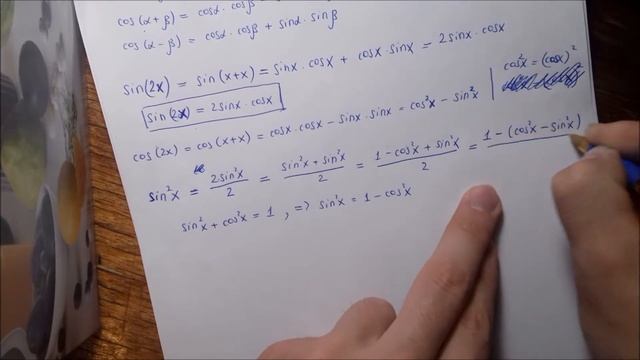 cos(α+β) = cosα · cosβ
cos(α-β) = cosα · cosβ + sinα · sinβ
sin(2x) = sin(x+x) = sinx · cosx + cosx · sinx = 2sinx · cosx
sin(2x) = 2sinx · cosx
cos²x = (cosx)²
cos(2x) = cos(x+x) = cosx · cosx - sinx · sinx = cos²x - sin²x
sin²x = 2sin²x/2 = sin²x + sin²x/2 = 1 - cos²x + sin²x/2 = 1 - (cos²x - sin²x)
sin²x + cos²x = 1 , => sin²x = 1 - cos²x